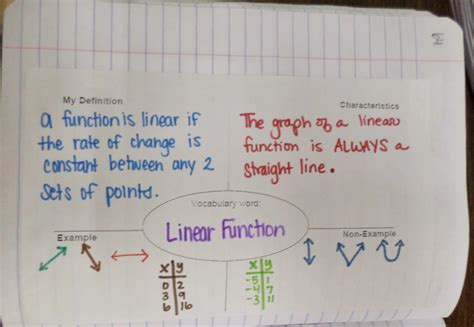 My Definition
a function is linear if
the rate of change is
constant between any 2
sets of points.
Characteristics
The graph of a linear
function is ALWAYS a
straight line.
Vocabulary word:
Linear Function
Example
x y
0 2
3 9
6 16
Non-Example
x y
-5 1
-4 7
-3 11